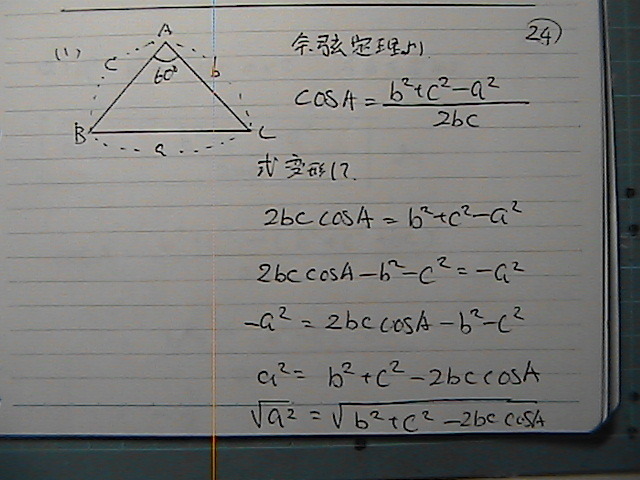 24
(1)
A
c
60°
b
B
C
a
余弦定理より
cosA = b²+c²-a² / 2bc
式変形して
2bc cosA = b²+c²-a²
2bc cosA - b² - c² = -a²
-a² = 2bc cosA - b² - c²
a² = b² + c² - 2bc cosA
√a² = √b² + c² - 2bc cosA